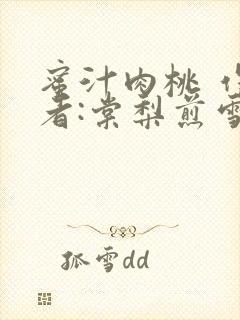 蜜汁肉桃 作
者:棠梨煎雪
孤雪dd